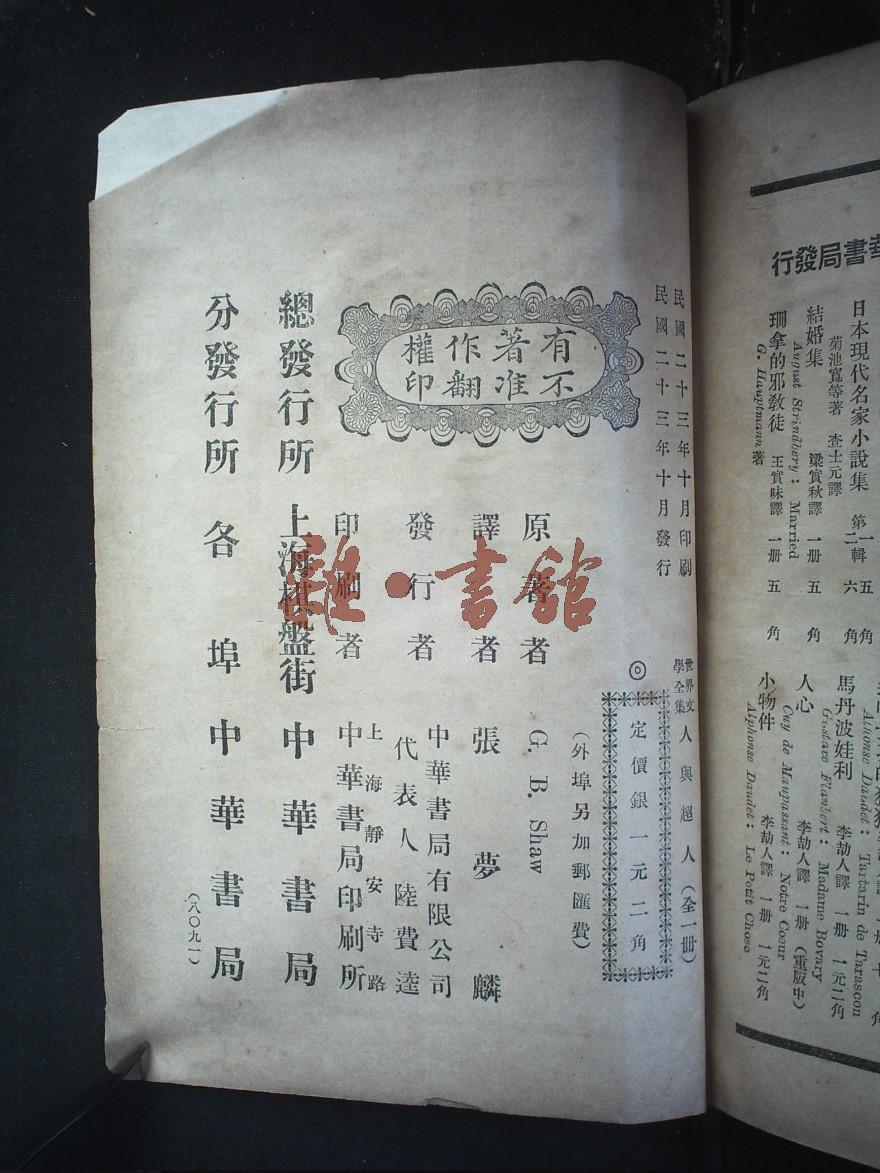 民國二十三年十月印刷
民國二十三年十月發行
世界文學全集 人與超人（全一冊）
◎定價銀一元二角
（外埠另加郵匯費）
有著作權
不准翻印
原著者 G. B. Shaw
譯者 張夢麟
發行者 中華書局有限公司
代表人 陸費逵
印刷者 上海靜安寺路
中華書局印刷所
總發行所 上海棋盤街 中華書局
分發行所 各埠中華書局
（八〇九一）
雜·書館
華書局發行
日本現代名家小說集 第一輯 五角
二 六角
菊池寬等著 查士元譯
結婚集 梁實秋譯 一册 五角
August Strindberg: Married
珊拿的邪教徒 王實味譯 一册 五角
G. Hauptmann 著
Alhonse Daudet: Tartarin de Tarascon
馬丹波娃利 李劼人譯 一册 一元二角
Gustave Flaubert: Madame Bovary
人心 李劼人譯 一册（重版中）
Guy de Maupassant: Notre Coeur
小物件 李劼人譯 一册 一元二角
Alphonse Daudet: Le Petit Chose